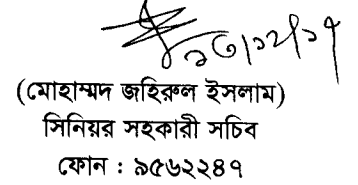 ২৩/১২/১৭
(মোহাম্মদ জহিরুল ইসলাম)
সিনিয়র সহকারী সচিব
ফোন : ৯৫৬২২৪৭